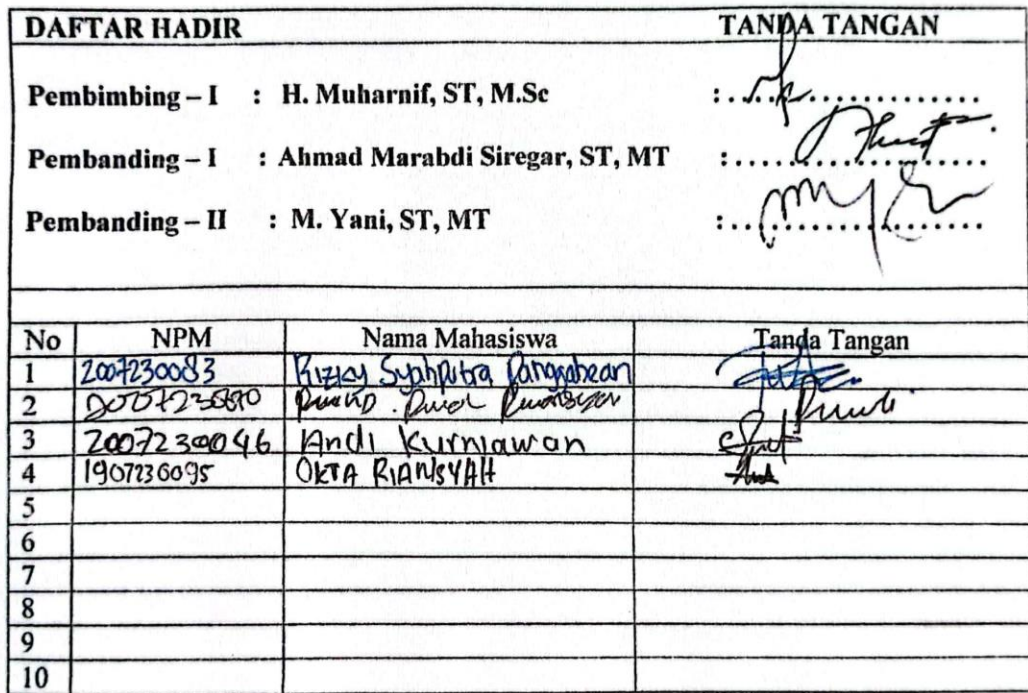 DAFTAR HADIR TANDA TANGAN
Pembimbing – I : H. Muharnif, ST, M.Sc :....................
Pembanding – I : Ahmad Marabdi Siregar, ST, MT :....................
Pembanding – II : M. Yani, ST, MT :....................
No NPM Nama Mahasiswa Tanda Tangan
1 2007230083 Rizky Syahputra Panggabean
2
3 2007230046 Andi Kurniawan
4 1907230095 OKTA RIANSYAH
5
6
7
8
9
10